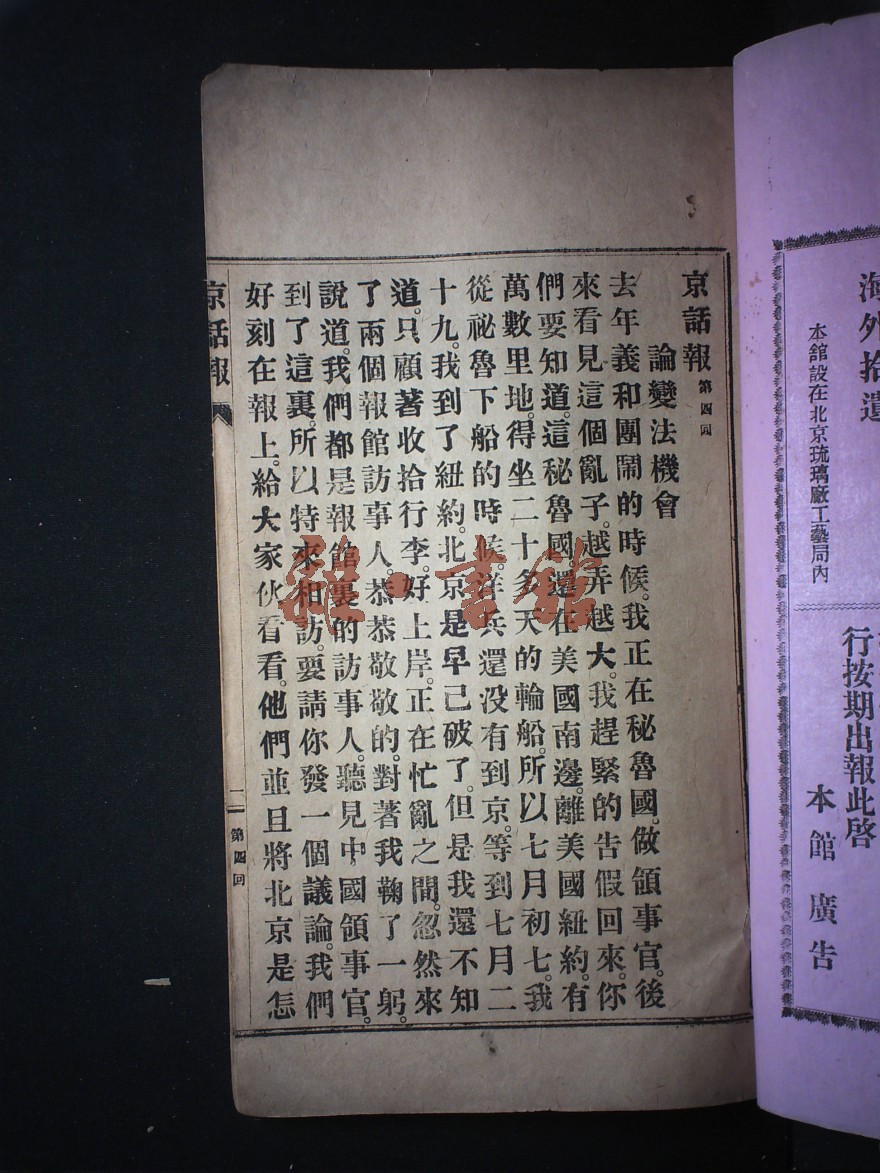 海外拾遺
本舘設在北京琉璃廠工藝局內
行按期出報此啓
本館廣告
京話報 第四回
論變法機會
去年義和團鬧的時候。我正在秘魯國。做領事官。後
來看見這個亂子。越弄越大。我趕緊的告假回來。你
們要知道。這秘魯國。還在美國南邊。離美國紐約。有
萬數里地。得坐二十多天的輪船。所以七月初七。我
從祕魯下船的時候。洋兵還没有到京。等到七月二
十九。我到了紐約。北京是早已破了。但是我還不知
道。只顧著收拾行李。好上岸。正在忙亂之間。忽然來
了兩個報館訪事人。恭恭敬敬的。對著我鞠了一躬。
說道。我們都是報館裏的訪事人。聽見中國領事官。
到了這裏。所以特來相訪。要請你發一個議論。我們
好刻在報上。給大家伙看看。他們並且將北京是怎
京話報
二
第四回
雜·書館